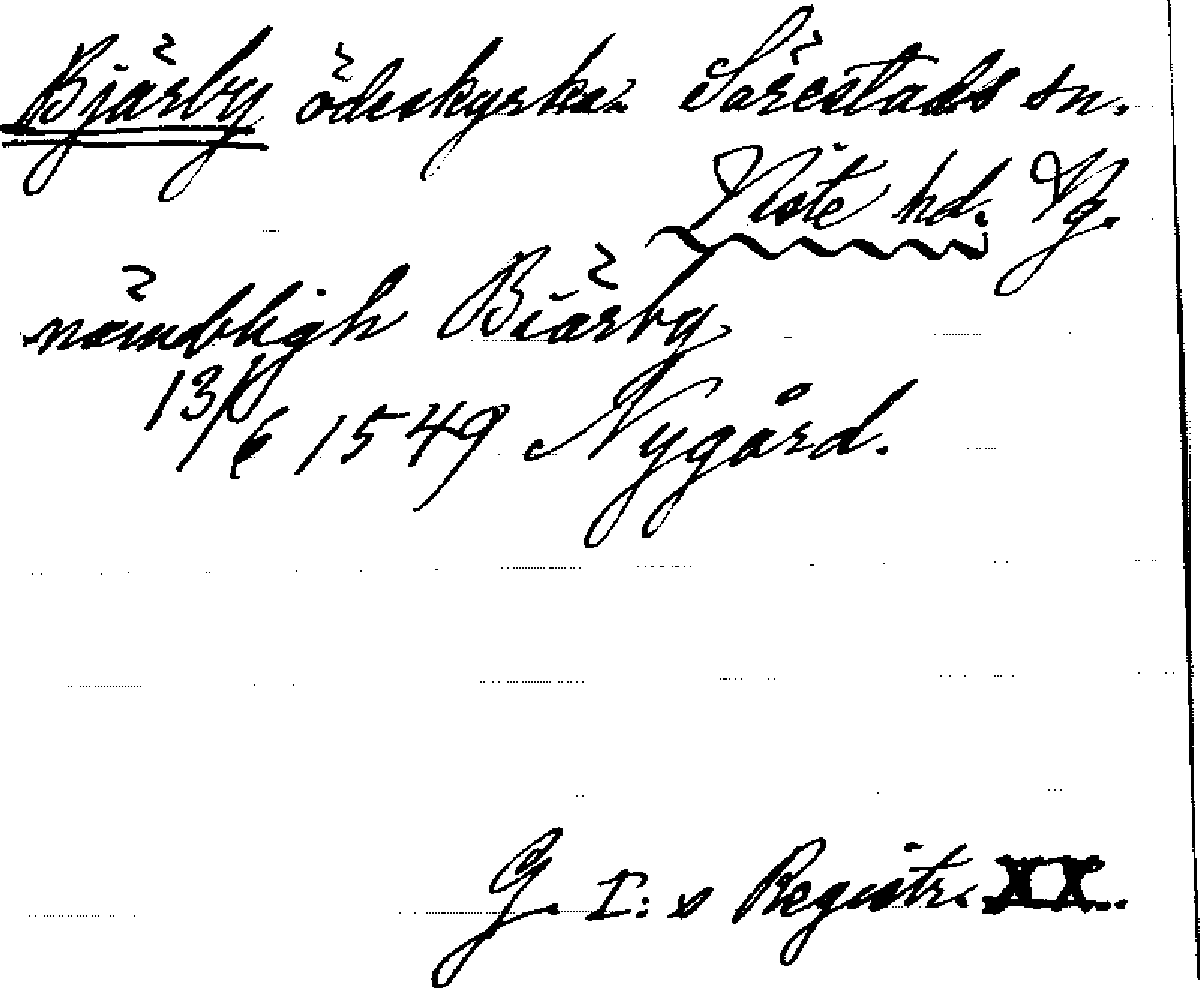 Bjärby ödeskyrka Särestads sn.
Viste hd. Vg.
nämbligh Biärby
13/6 1549 Nygård.
G. I:s Registr. XX.